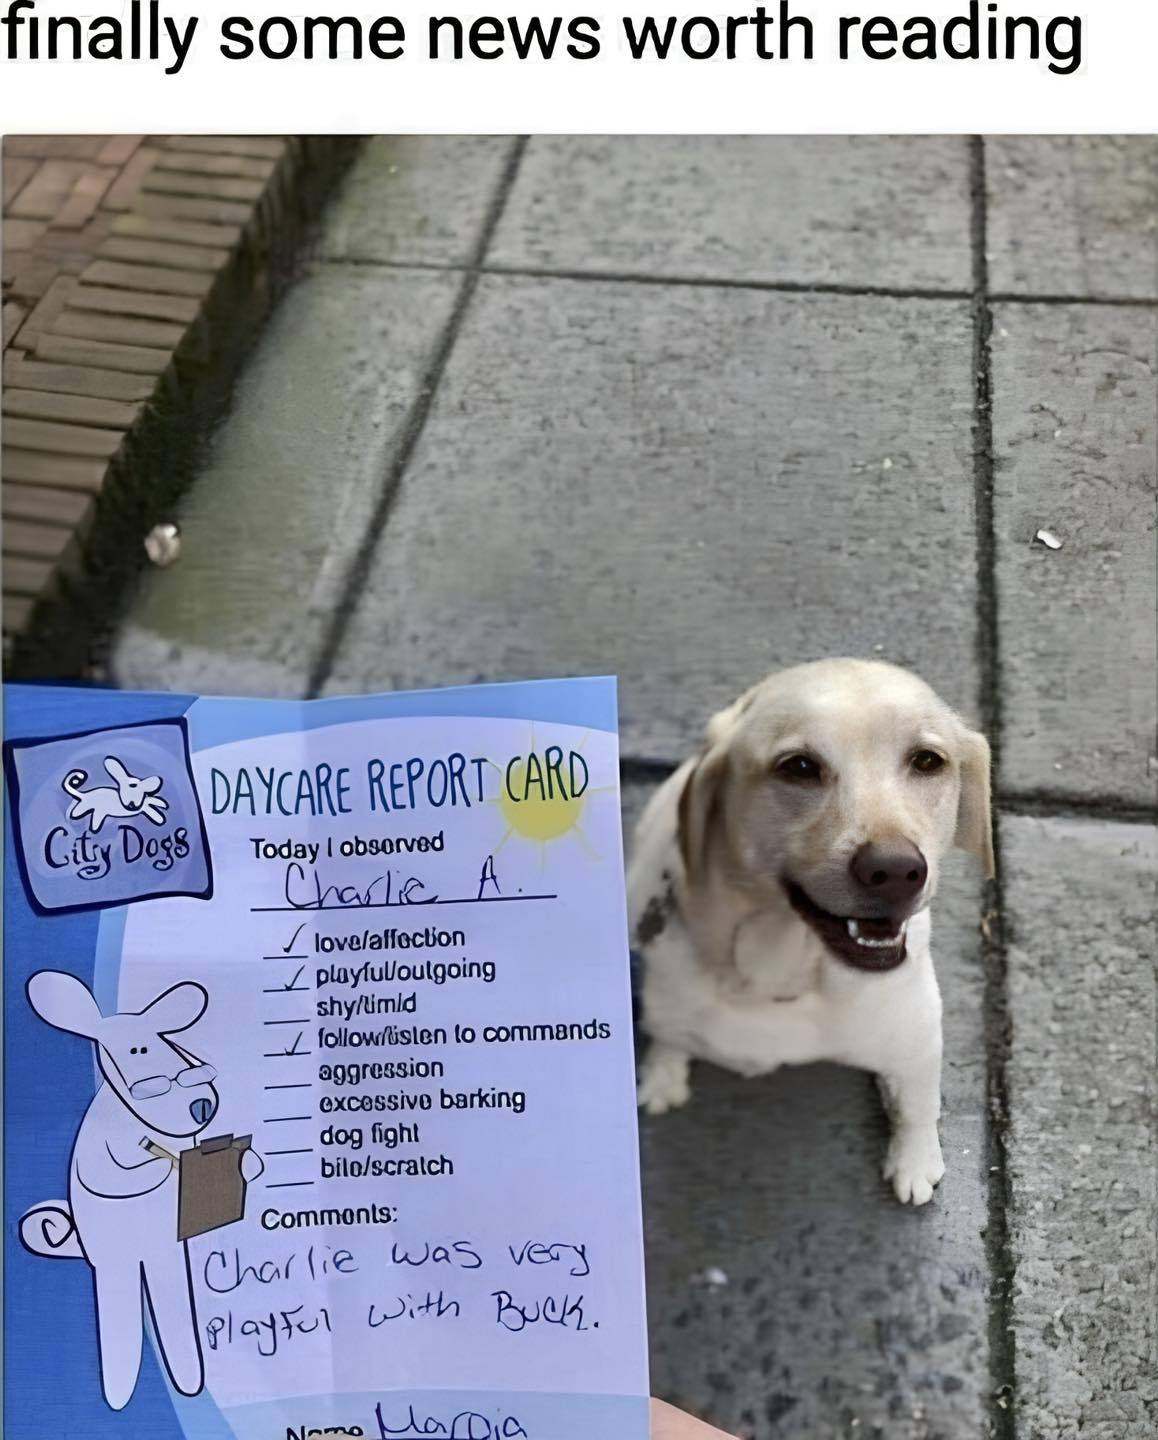 finally some news worth reading
City Dogs
DAYCARE REPORT CARD
Today I observed
Charlie A.
✓ love/affection
✓ playful/outgoing
shy/timid
✓ follow/listen to commands
aggression
excessive barking
dog fight
bite/scratch
Comments:
Charlie was very
playful with Buck.
Name